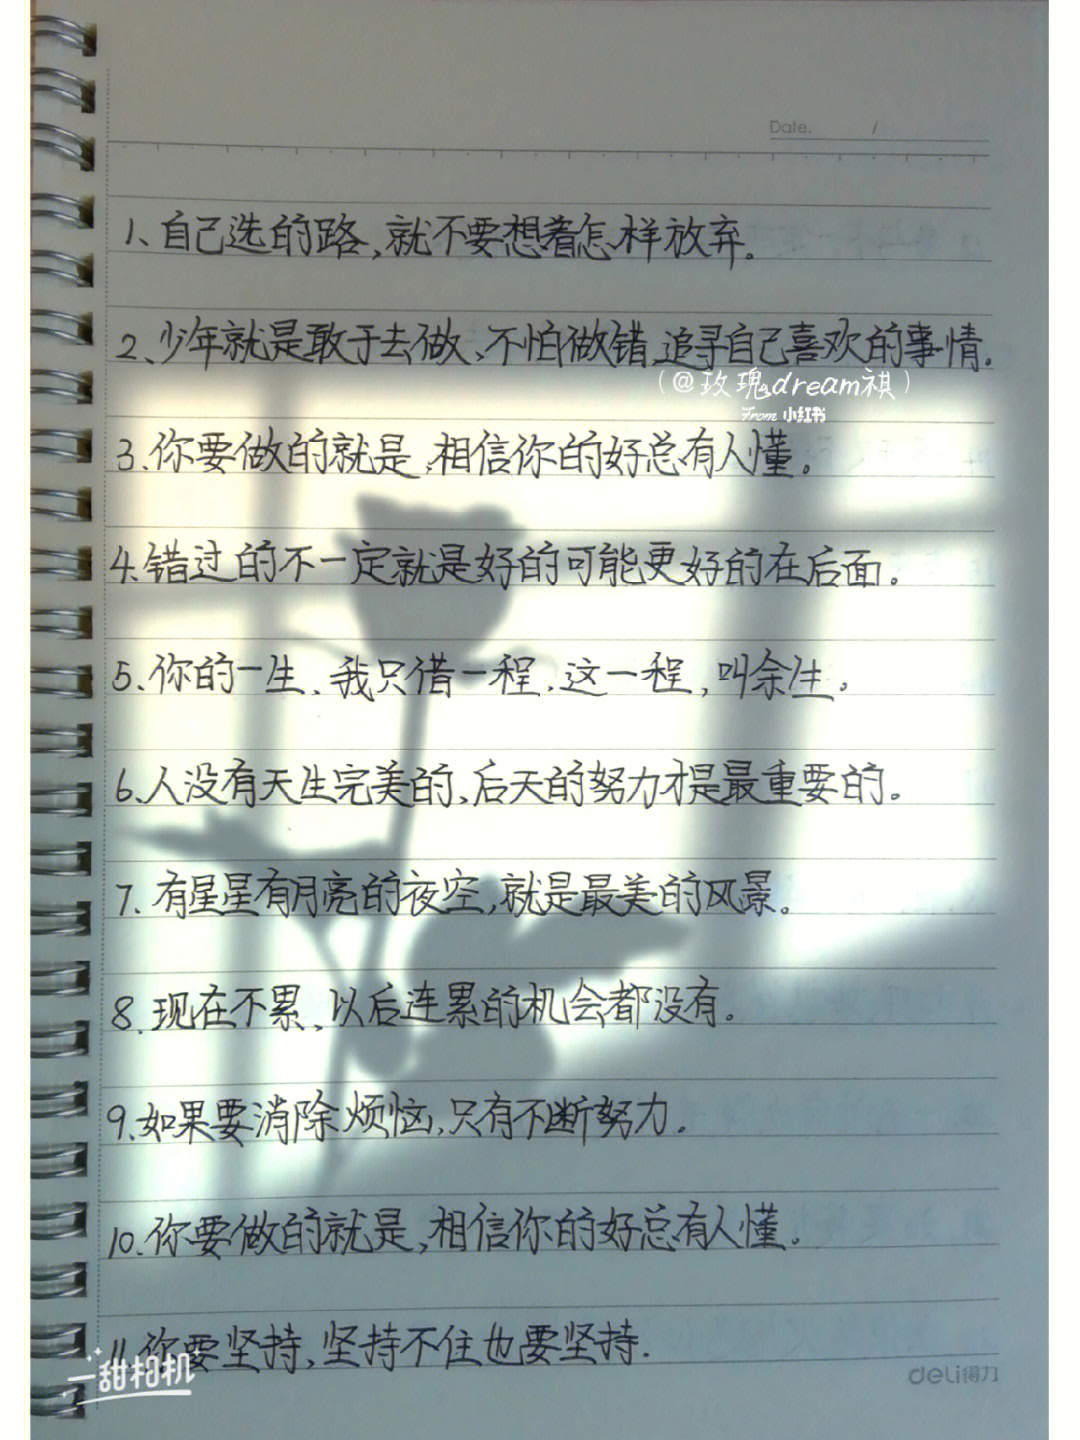 Date. /
1、自己选的路,就不要想着怎样放弃。
2、少年就是敢于去做、不怕做错,追寻自己喜欢的事情.
(@玫瑰dream祺)
From 小红书
3、你要做的就是,相信你的好总有人懂。
4、错过的不一定就是好的可能更好的在后面.
5、你的一生、我只借一程,这一程,叫余生.
6、人没有天生完美的、后天的努力才是最重要的。
7、有星星有月亮的夜空,就是最美的风景。
8、现在不累、以后连累的机会都没有。
9、如果要消除烦恼,只有不断努力.
10、你要做的就是,相信你的好总有人懂.
11、你要坚持,坚持不住也要坚持.
一甜相机
deli得力